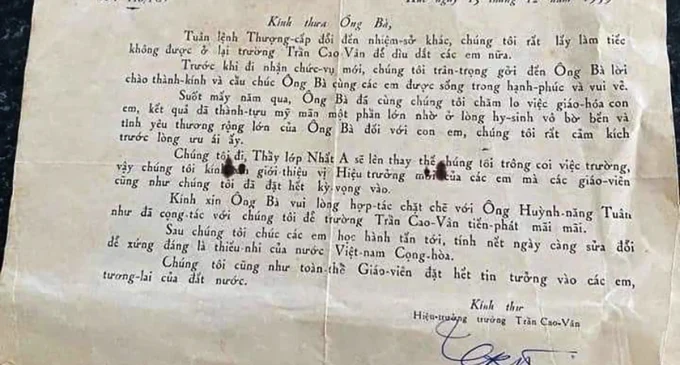 Huế ngày 15 tháng 12 năm 1959
Kính thưa Ông Bà,
Tuân lệnh Thượng-cấp đổi đến nhiệm-sở khác, chúng tôi rất lấy làm tiếc
không được ở lại trường Trần Cao-Vân để dìu dắt các em nữa.
Trước khi đi nhận chức-vụ mới, chúng tôi trân-trọng gởi đến Ông Bà lời
chào thành-kính và cầu chúc Ông Bà cùng các em được sống trong hạnh-phúc và vui vẻ.
Suốt mấy năm qua, Ông Bà đã cùng chúng tôi chăm lo việc giáo-hóa con
em, kết quả đã thành-tựu mỹ mãn một phần lớn nhờ ở lòng hy-sinh vô bờ bến và
tình yêu thương rộng lớn của Ông Bà đối với con em, chúng tôi rất cảm kích
trước lòng ưu ái ấy.
Chúng tôi đi, Thầy lớp Nhất A sẽ lên thay thế chúng tôi trông coi việc trường,
vậy chúng tôi giới thiệu vị Hiệu trưởng của các em mà các giáo-viên
cũng như chúng tôi đã đặt hết kỳ-vọng vào.
Kính xin Ông Bà vui lòng hợp-tác chặt chẽ với Ông Huỳnh-năng Tuân
như đã cọng-tác với chúng tôi để trường Trần Cao-Vân tiến-phát mãi mãi.
Sau chúng tôi chúc các em học hành tấn tới, tính nết ngày càng sửa đổi
để xứng đáng là thiếu-nhi của nước Việt-nam Cọng-hòa.
Chúng tôi cũng như toàn-thể Giáo-viên đặt hết tin tưởng vào các em,
tương-lai của đất nước.
Kính thư
Hiệu-trưởng trường Trần Cao-Vân